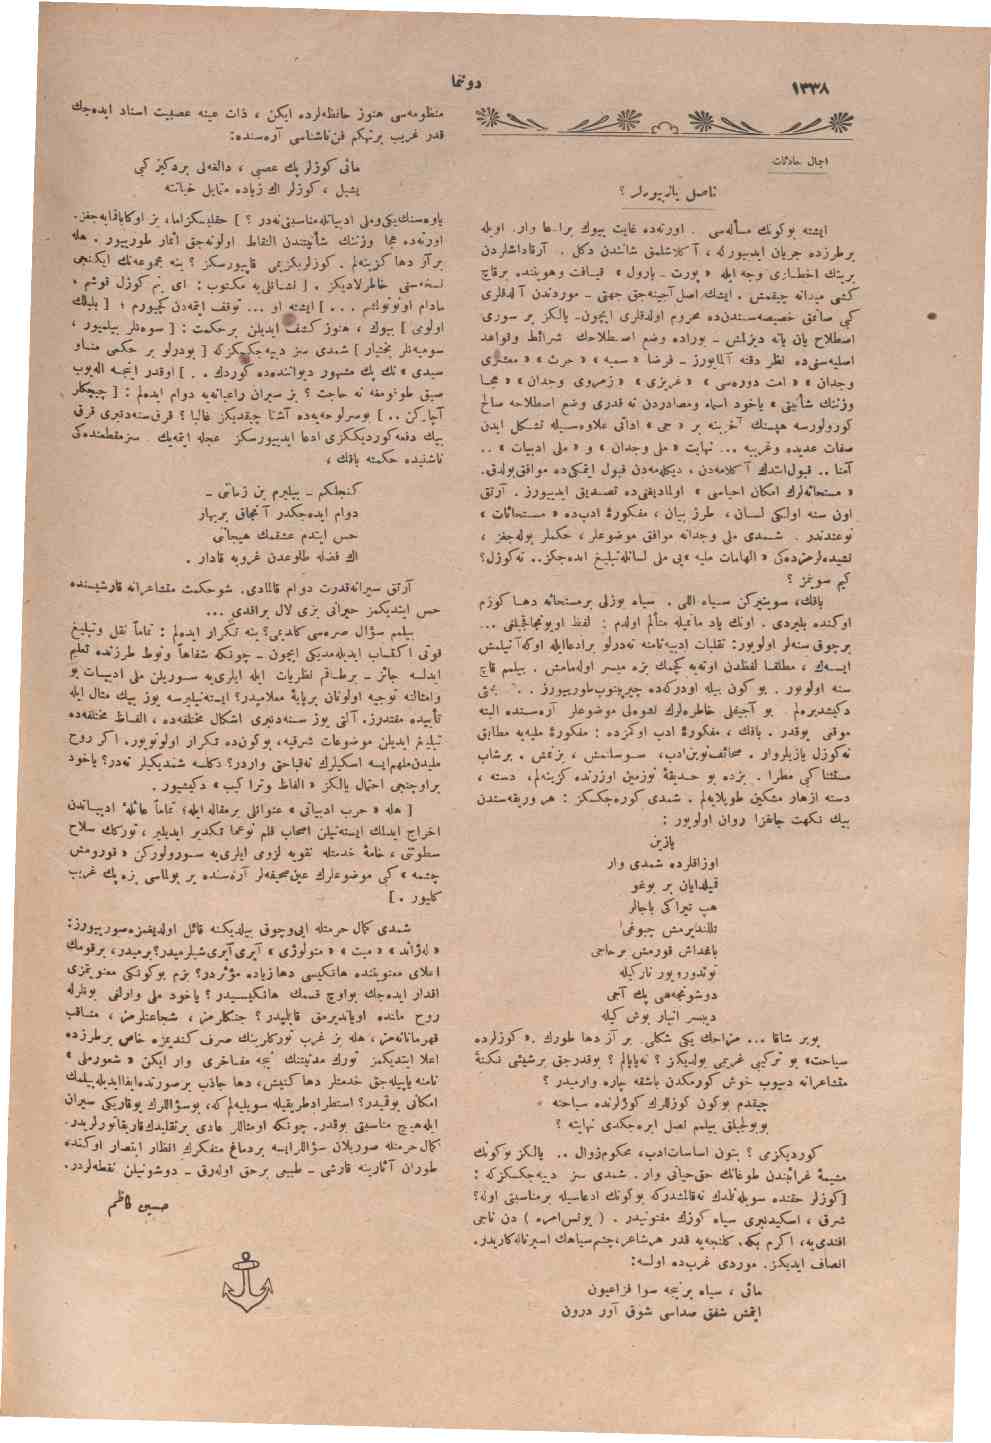 ١٣٣٨
دوننما
اجمال حادثات
ناصل يازييورلر ؟
ايشته بوكونك مسألهسى . اورتهده غايت بيوك برادعا وار. اويله
برطرزده جريان ايدييوركه ، آكلاشلمق شانندن دكل . آرقاداشلردن
برينك اخطارى وجه ايله « پورت ـ پارول » قيافت وهويتنده برقاچ
كشى ميدانه چيقمش . ايشك اصل آجينهجق جهتى ـ موردندن آلدقلرى
كبى صاتمق خصيصهسندنده محروم اولدقلرى ايچون ـ يالكز بر سورى
اصطلاح يان يانه ديزلمش ـ بوراده وضع اصطلاحك شرائط وقواعد
اصليهسنىده نظر دقته آلمايورز ـ فرضا « سميه » « حرث » « معشرى
وجدان » « امت دورهسى » « غريزى » « زمروى وجدان » « هجا
وزننك شأنيتى » ياخود اسماء ومصادردن نه قدرى وضع اصطلاحه صالح
كورولورسه هپسنك آخرينه بر « جى » اداتى علاوهسيله تشكل ايدن
صفات عديده وغريبه ... نهايت « ملى وجدان » و « ملى ادبيات » ..
آمنا .. قبول ايتدك آكلامهدن ، ديكلهمهدن قبول ايتمكىده موافق بولدق.
« مستحاثهلرك امكان احياسى » اولماديغنىده تصديق ايدييورز . آرتق
اون سنه اولكى لسان ، طرز بيان ، مفكورۀ ادبده « مستحاثات »
نوعندندر . شمدى ملى وجدانه موافق موضوعلر ، حكملر بولهجغز ،
نشيدهلرمزدهكى « الهامات مليه »يى ملى لسانله تبليغ ايدهجكز.. نه كوزل؟
كيم سونمز ؟
باقك، سويشيركن سياه اللى . سياه يوزلى برمستحاثه دها كوزم
اوكنده بليردى . اونك ياد ماتميله متألم اولدم : لفظ اويونجاقجيلغى ...
برچوق سنهلر اولويور: تقلبات ادبيه نامنه نهدرلو برادعا ايله اوكه آتيلمش
ايسهك ، مطلقا لفظدن اوتهيه كچمك بزه ميسر اولمامش . بيلمم قاچ
سنه اولويور . بوكون بيله اودركهده چيرپينوب طورييورز ... بحثى
دكيشديرهلم . بو آجيقلى خاطرهلرك نشوهلى موضوعلر آرهسنده البته
موقعى يوقدر . باقك ، مفكورۀ ادب اوكمزده : مفكورۀ مليهيه مطابق
نه كوزل يازيلروار . صحائف نوين ادب، سوسلنمش ، بزنمش . برشاب
مستثنا كبى مطرا . بزده بو حديقۀ نوزمين اوزرنده كزينهلم ، دسته ،
دسته ازهار مشكين طوپلايهلم . شمدى كورهجكسكز : هر وريقهسندن
بيك نكهت جانفزا روان اولويور :
يازين
اوزاقلرده شمدى وار
قيلدايان بر بوغو
هپ تيراكى باجالر
تللنديرمش چبوغى
باغداش قورمش برحاجى
توتدورويور ناركيله
دوشونجهسى پك آجى
ديبسر انبار بوش كيله
بوبر شاقا ... مزاحك يكى شكلى . بر آز دها طورك . « كوزلرده
سياحت» بو تركيبى غريبمى بولديكز ؟ نه ياپالم ؟ بوقدرجق برشيئى نكتۀ
متشاعرانه دييوب خوش كورمكدن باشقه چاره وارميدر ؟
چيقدم بوكون كوزللرك كوزلرنده سياحته
بو يولجيلق بيلمم نصل ايرهجكدى نهايته ؟
كورديكزمى ؟ بتون اساسات ادب، محكوم زوال .. يالكز بوكونك
مشيمۀ غرائبندن طوغانك حق حياتى وار. شمدى سز دييهجكسكزكه :
[كوزلر حقنده سويلهنلدك نه قالمشدركه بوكونك ادعاسيله برمناسبتى اوله؟
شرق ، اسكيدنبرى سياه كوزك مفتونيدر . ( يونس امره ) دن ناجى
افندىيه، اكرم بكه، كلنجهيه قدر هرشاعر، چشم سياهك اسيرنالهكاريدر.
انصاف ايديكز. موردى غربده اولسه:
مائى ، سياه برنيجه سوا فزاعيون
ايتمش شفق صداسى شوق آور درون
منظومهسى هنوز حافظهلرده ايكن ، ذات عينه عصبيت اسناد ايدهجك
قدر غريب برتهكم فن ناشناسى آرهسنده:
مائى كوزلر پك عصبى ، دالغهلى بردكيز كبى
يشيل ، كوزلر اك زياده متمايل خيانته
ياوهسنك يكى وملى ادبياتله مناسبتى نهدر ؟ ] حقليسكز اما، بز اوكا باقمايهجغز.
اورتهده هجا وزننك شأنيتندن التقاط اولونهجق اثمار طورييور . هله
برآز دها كزينهلم . كوزلريكزيمى قاپييورسكز ؟ ينه مجموعهنك ايكنجى
نسخهسنى خاطرلاديكز . [ نشانلىيه مكتوب : اى بم كوزل قوشم ،
مادام اوتوتولتم . . . ] ايشته او ... توقف ايتمهدن كچيورم ؛ [ بلبلك
اولومى ] بيوك ، هنوز كشف ايديلن برحكمت : [ سوهنلر بيلميور ،
سوميهنلر بختيار ] شمدى سز دييهجكسكزكه [ بودرلو بر حكمى مناو
سيدى » نك پك مشهور ديواننندهده كوردك . . ] اوقدر اينجه الهيوب
صيق طوقومغه نه حاجت ؟ بز سيران راعيانهيه دوام ايدهلم : [ چيچكلر
آچاركن .. ] بوسرلوحهيهده آشنا چيقديكز غالبا ؟ قرق سنهدنبرى قرق
بيك دفعه كورديككزى ادعا ايدييورسكز عجله ايتمهيك . سز مقطعندهكى
ناشنيده حكمته باقك ،
كنجلكم ـ بيليرم بن زماتى ـ
دوام ايدهجكدر آنجاق بربهار
حس ايتدم عشقمك هيجانى
اك فضله طلوعدن غروبه قادار .
آرتق سيرانه قدرت دوام قالمادى. شوحكمت متشاعرانه قارشيسنده
حس ايتديكمز حيرانى بزى لال براقدى ...
بيلمم سؤال صرهسى كلديمى؟ ينه تكرار ايدهلم : تماماً نقل وتبليغ
قوتى اكتساب ايديلهمديكى ايچون ـ چونكه شفاهاً ونوط طرزنده تعليم
ايدلسه جائز ـ برطاقم نظريات ايله ايلرىيه سوريلن ملى ادبيات بو
وامثالنه توجيه اولونان برپايۀ معلاميدر؟ ايستهنيليرسه يوز بيك مثال ايله
تأييده مقتدرز. آلتى يوز سنهدنبرى اشكال مختلفهده ، الفاظ مختلفهده
تبليغ ايديلن موضوعات شرقيه، بوكونده تكرار اولونويور. اكر روح
مليدن ملهم ايسه اسكيلرك نه قباحتى واردر؟ دكلسه شمديكيلر نهدر؟ ياخود
براوجنجى احتمال يالكز « الفاظ وتراكيب » دكيشيور .
[ هله « حرب ادبياتى » عنوانلى برمقاله ايله؛ تماماً عائلۀ ادبياتدن
اخراج ايدلك ايستهنيلن اصحاب قلم نوعما تكدير ايديلير ، توركك سلاح
سطوتنى ، خامۀ خدمتله تقويه لزومى ايلرىيه سورولوركن « قورومش
چشمه » كبى موضوعلرك عين صحيفهلر آرهسنده ير بولماسى بزه پك غريب
كليور . ]
شمدى كمال حرمتله ايىوچوق بيلديكنه قائل اولديغمزه صورييورز:
« لهژاند » « ميت » « متولوژى » آيرى آيرى شيلرميدر؟ برميدر، برقومك
اعلاى معنويتنده هانكيسى دها زياده مؤثردر؟ بزم بوكونكى معنويتمزى
اقدار ايدهجك بواوچ قسمك هانكيسيدر ؟ ياخود ملى وارلغى بونلرله
روح مانده اوياندرمق قابليدر ؟ جنكلرمز ، شجاعتلرمز ، مناقب
قهرمانانهمز، هله بز غرب توركلرينك صرف كنديمزه خاص برطرزده
اعلا ايتديكمز تورك مدنيتنك نيجه مفاخرى وار ايكن « شعورملى »
نامنه ياپيلهجق خدمتلر دها كنيش، دها جاذب برصورتده ايفا ايديله بيلمك
امكانى يوقميدر؟ استطراد طريقيله سويليهلم كه، بوسؤاللرك بوقاريكى سيران
ايله هيچ مناسبتى يوقدر. چونكه اومثاللر عادى برتقليدك قاريقاتورلريدر.
كمال حرمتله صوريلان سؤاللرايسه بردماغ متفكرك انظار ابتصار اوكنده
طوران آثارينه قارشى ـ طبيعى برحق اولهرق ـ دوشونيلن نقطهلردر.
حسين كاظم